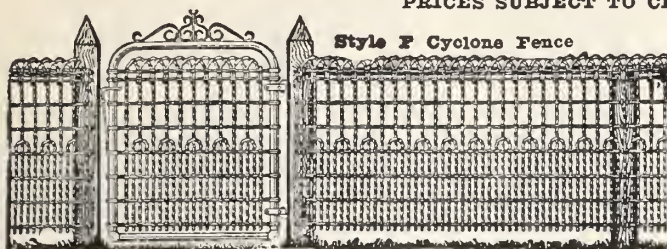 PRICES SUBJECT TO
Style F Cyclone Fence